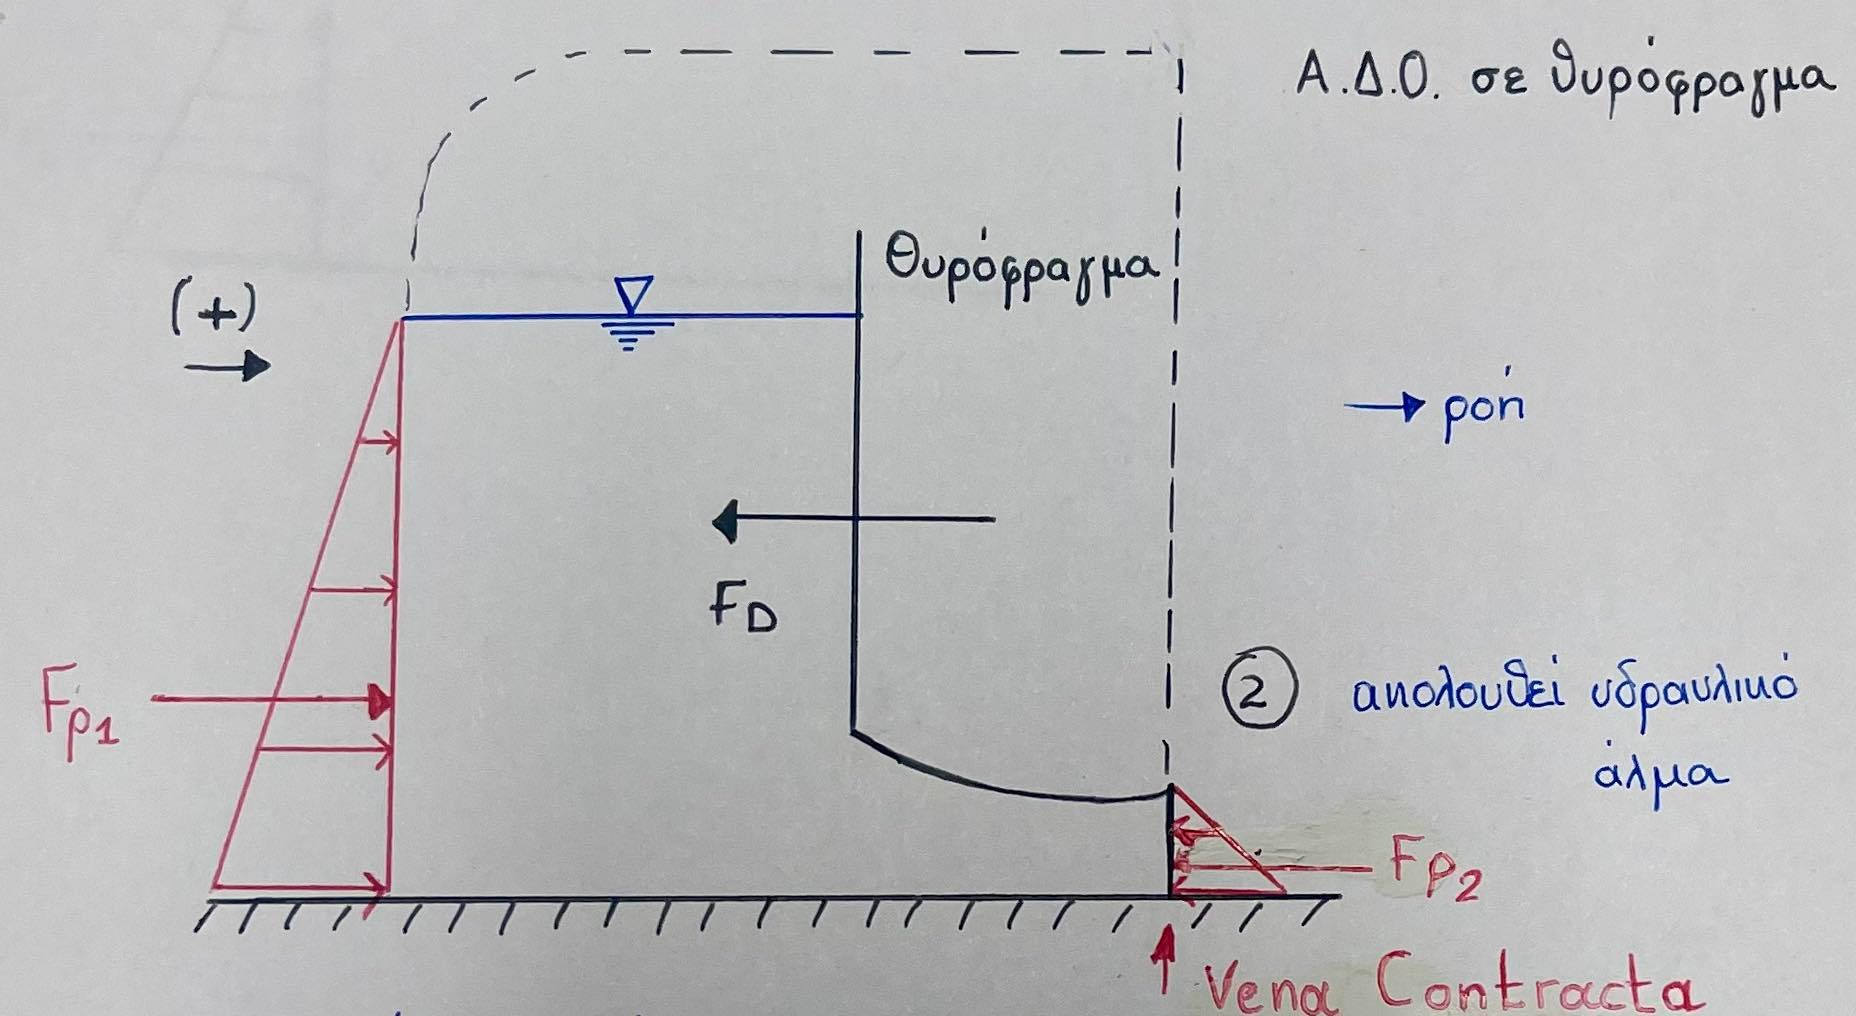 Α.Δ.Ο. σε θυρόφραγμα
Θυρόφραγμα
(+)
ροή
FD
Fp1
2 ακολουθεί υδραυλικό
άλμα
Fp2
Vena Contracta